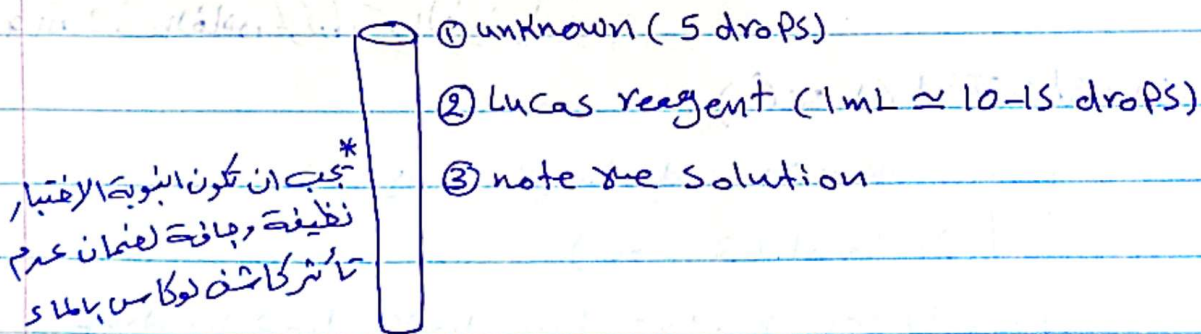 ① unknown (5 drops)
② Lucas reagent (1mL ≃ 10-15 drops)
③ note the solution
* يجب ان تكون انبوبة الاختبار
نظيفة وجافة لضمان عدم
تأثر كاشف لوكاس بالماء